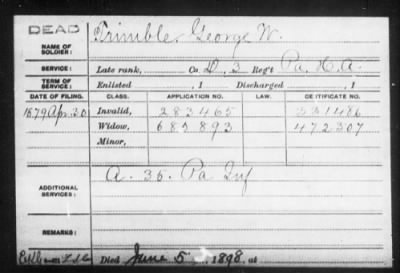 DEAD
NAME OF SOLDIER: Trimble, George W.
SERVICE: Late rank, Co. D, 3 Reg't Pa. H.A.
TERM OF SERVICE: Enlisted , 1 Discharged , 1
DATE OF FILING. CLASS. APPLICATION NO. LAW. CERTIFICATE NO.
1879 Apr. 30 Invalid, 283465
Widow, 685893 472307
Minor,
ADDITIONAL SERVICES: A. 35. Pa Inf
REMARKS:
Died June 5, 1898, at